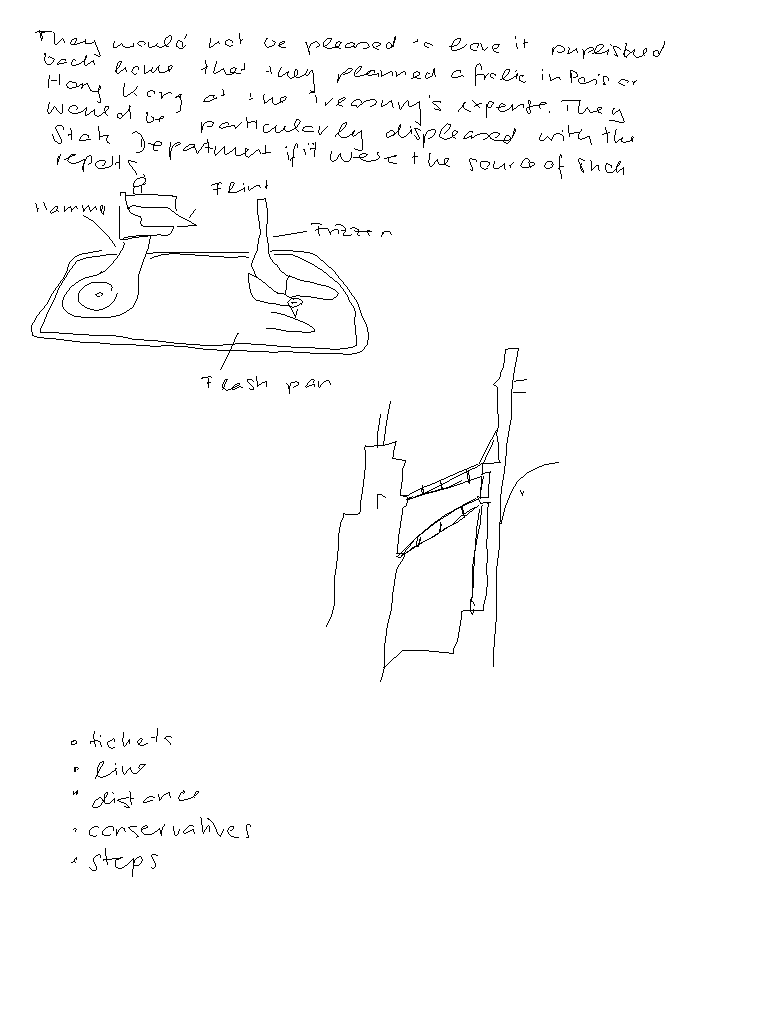 They would not be pleased to have it published
back home that they planned a frolic in Paris or
Hong Kong at the Treasury's expense. They
would be particularly displeased with the
State Department if it were the source of such
reports
Flint
Hamme
Frizzen
Flash pan
• tickets
• line
• distance
• conservatives
• steps